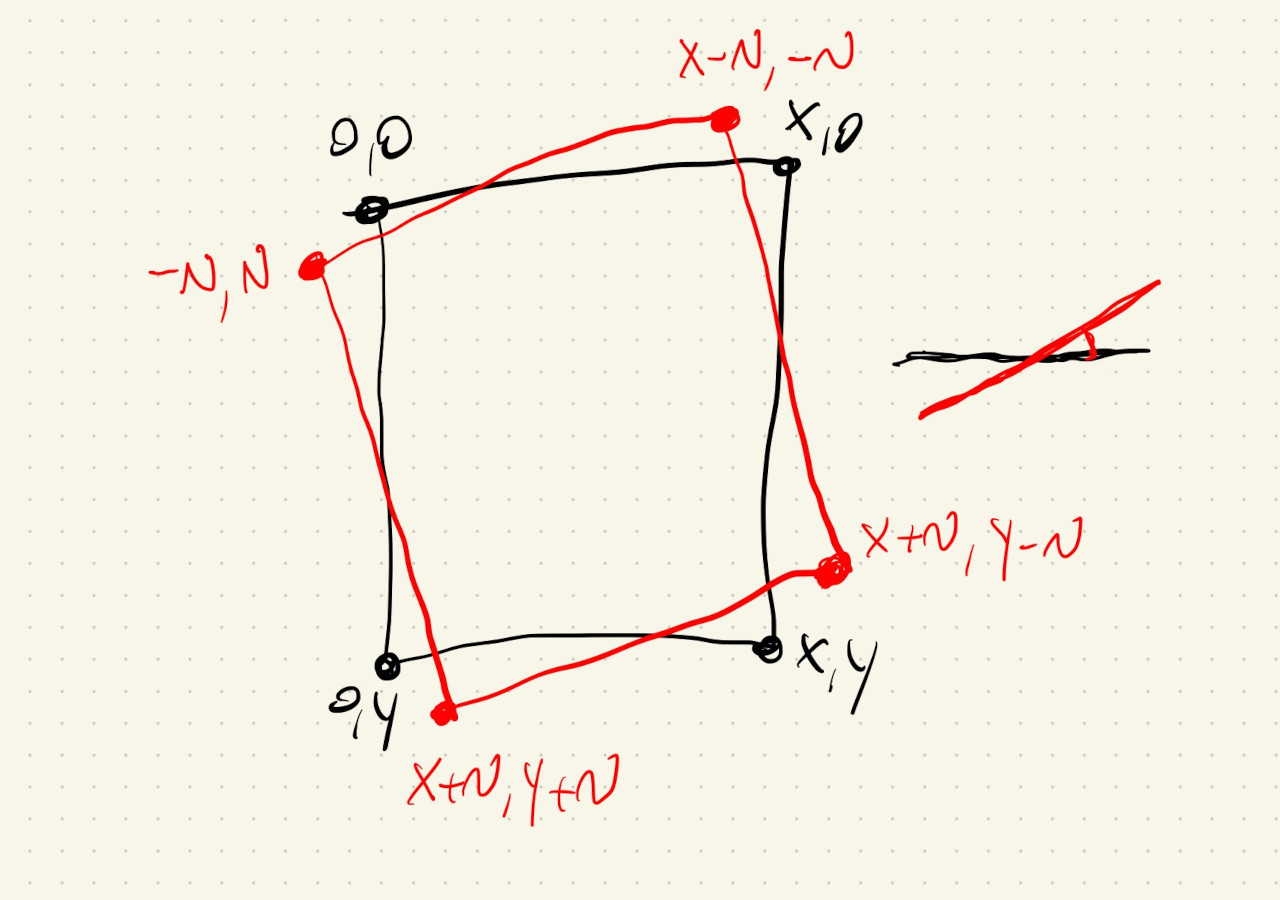 X-N, -N
0,0
X,0
-N, N
X+N, Y-N
X,Y
0,Y
X+N, Y+N